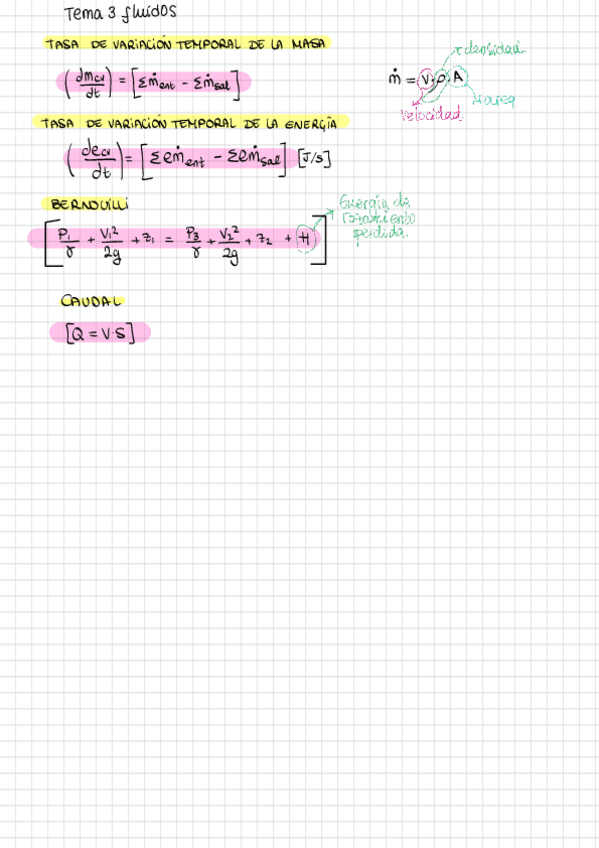 Tema 3 fluidos
TASA DE VARIACIÓN TEMPORAL DE LA MASA
(dm_cv/dt) = [Σṁ_ent - Σṁ_sal]
ṁ = V · ρ · A
densidad
área
Velocidad
TASA DE VARIACIÓN TEMPORAL DE LA ENERGÍA
(de_cv/dt) = [Σeṁ_ent - Σeṁ_sal] [J/s]
BERNOUILLI
[P₁/γ + V₁²/2g + z₁ = P₃/γ + V₂²/2g + z₂ + H]
Energía de
rozamiento
perdida.
CAUDAL
[Q = V·S]